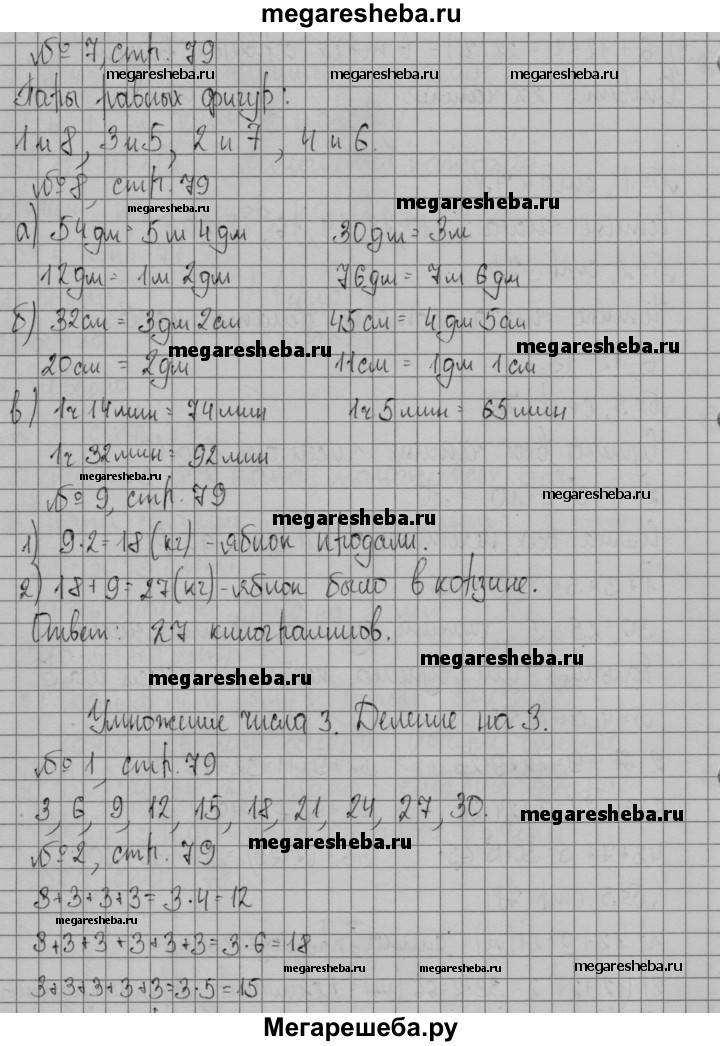 megaresheba.ru
№ 7, стр. 79
megaresheba.ru megaresheba.ru megaresheba.ru
Пары равных фигур:
1 и 8, 3 и 5, 2 и 7, 4 и 6.
№ 8, стр. 79
megaresheba.ru megaresheba.ru
а) 54 дм = 5 м 4 дм 30 дм = 3 м
12 дм = 1 м 2 дм 76 дм = 7 м 6 дм
б) 32 см = 3 дм 2 см 45 см = 4 дм 5 см
megaresheba.ru megaresheba.ru
20 см = 2 дм 11 см = 1 дм 1 см
в) 1 ч 14 мин = 74 мин 1 ч 5 мин = 65 мин
1 ч 32 мин = 92 мин
megaresheba.ru
№ 9, стр. 79 megaresheba.ru
megaresheba.ru
1) 9·2=18 (кг) - яблок продали.
2) 18+9=27 (кг) - яблок было в корзине.
Ответ: 27 килограммов.
megaresheba.ru
megaresheba.ru
Умножение числа 3. Деление на 3.
№ 1, стр. 79
3, 6, 9, 12, 15, 18, 21, 24, 27, 30. megaresheba.ru
№ 2, стр. 79 megaresheba.ru
3+3+3+3=3·4=12
megaresheba.ru
3+3+3+3+3+3=3·6=18
megaresheba.ru megaresheba.ru megaresheba.ru
3+3+3+3+3=3·5=15
Мегарешеба.ру